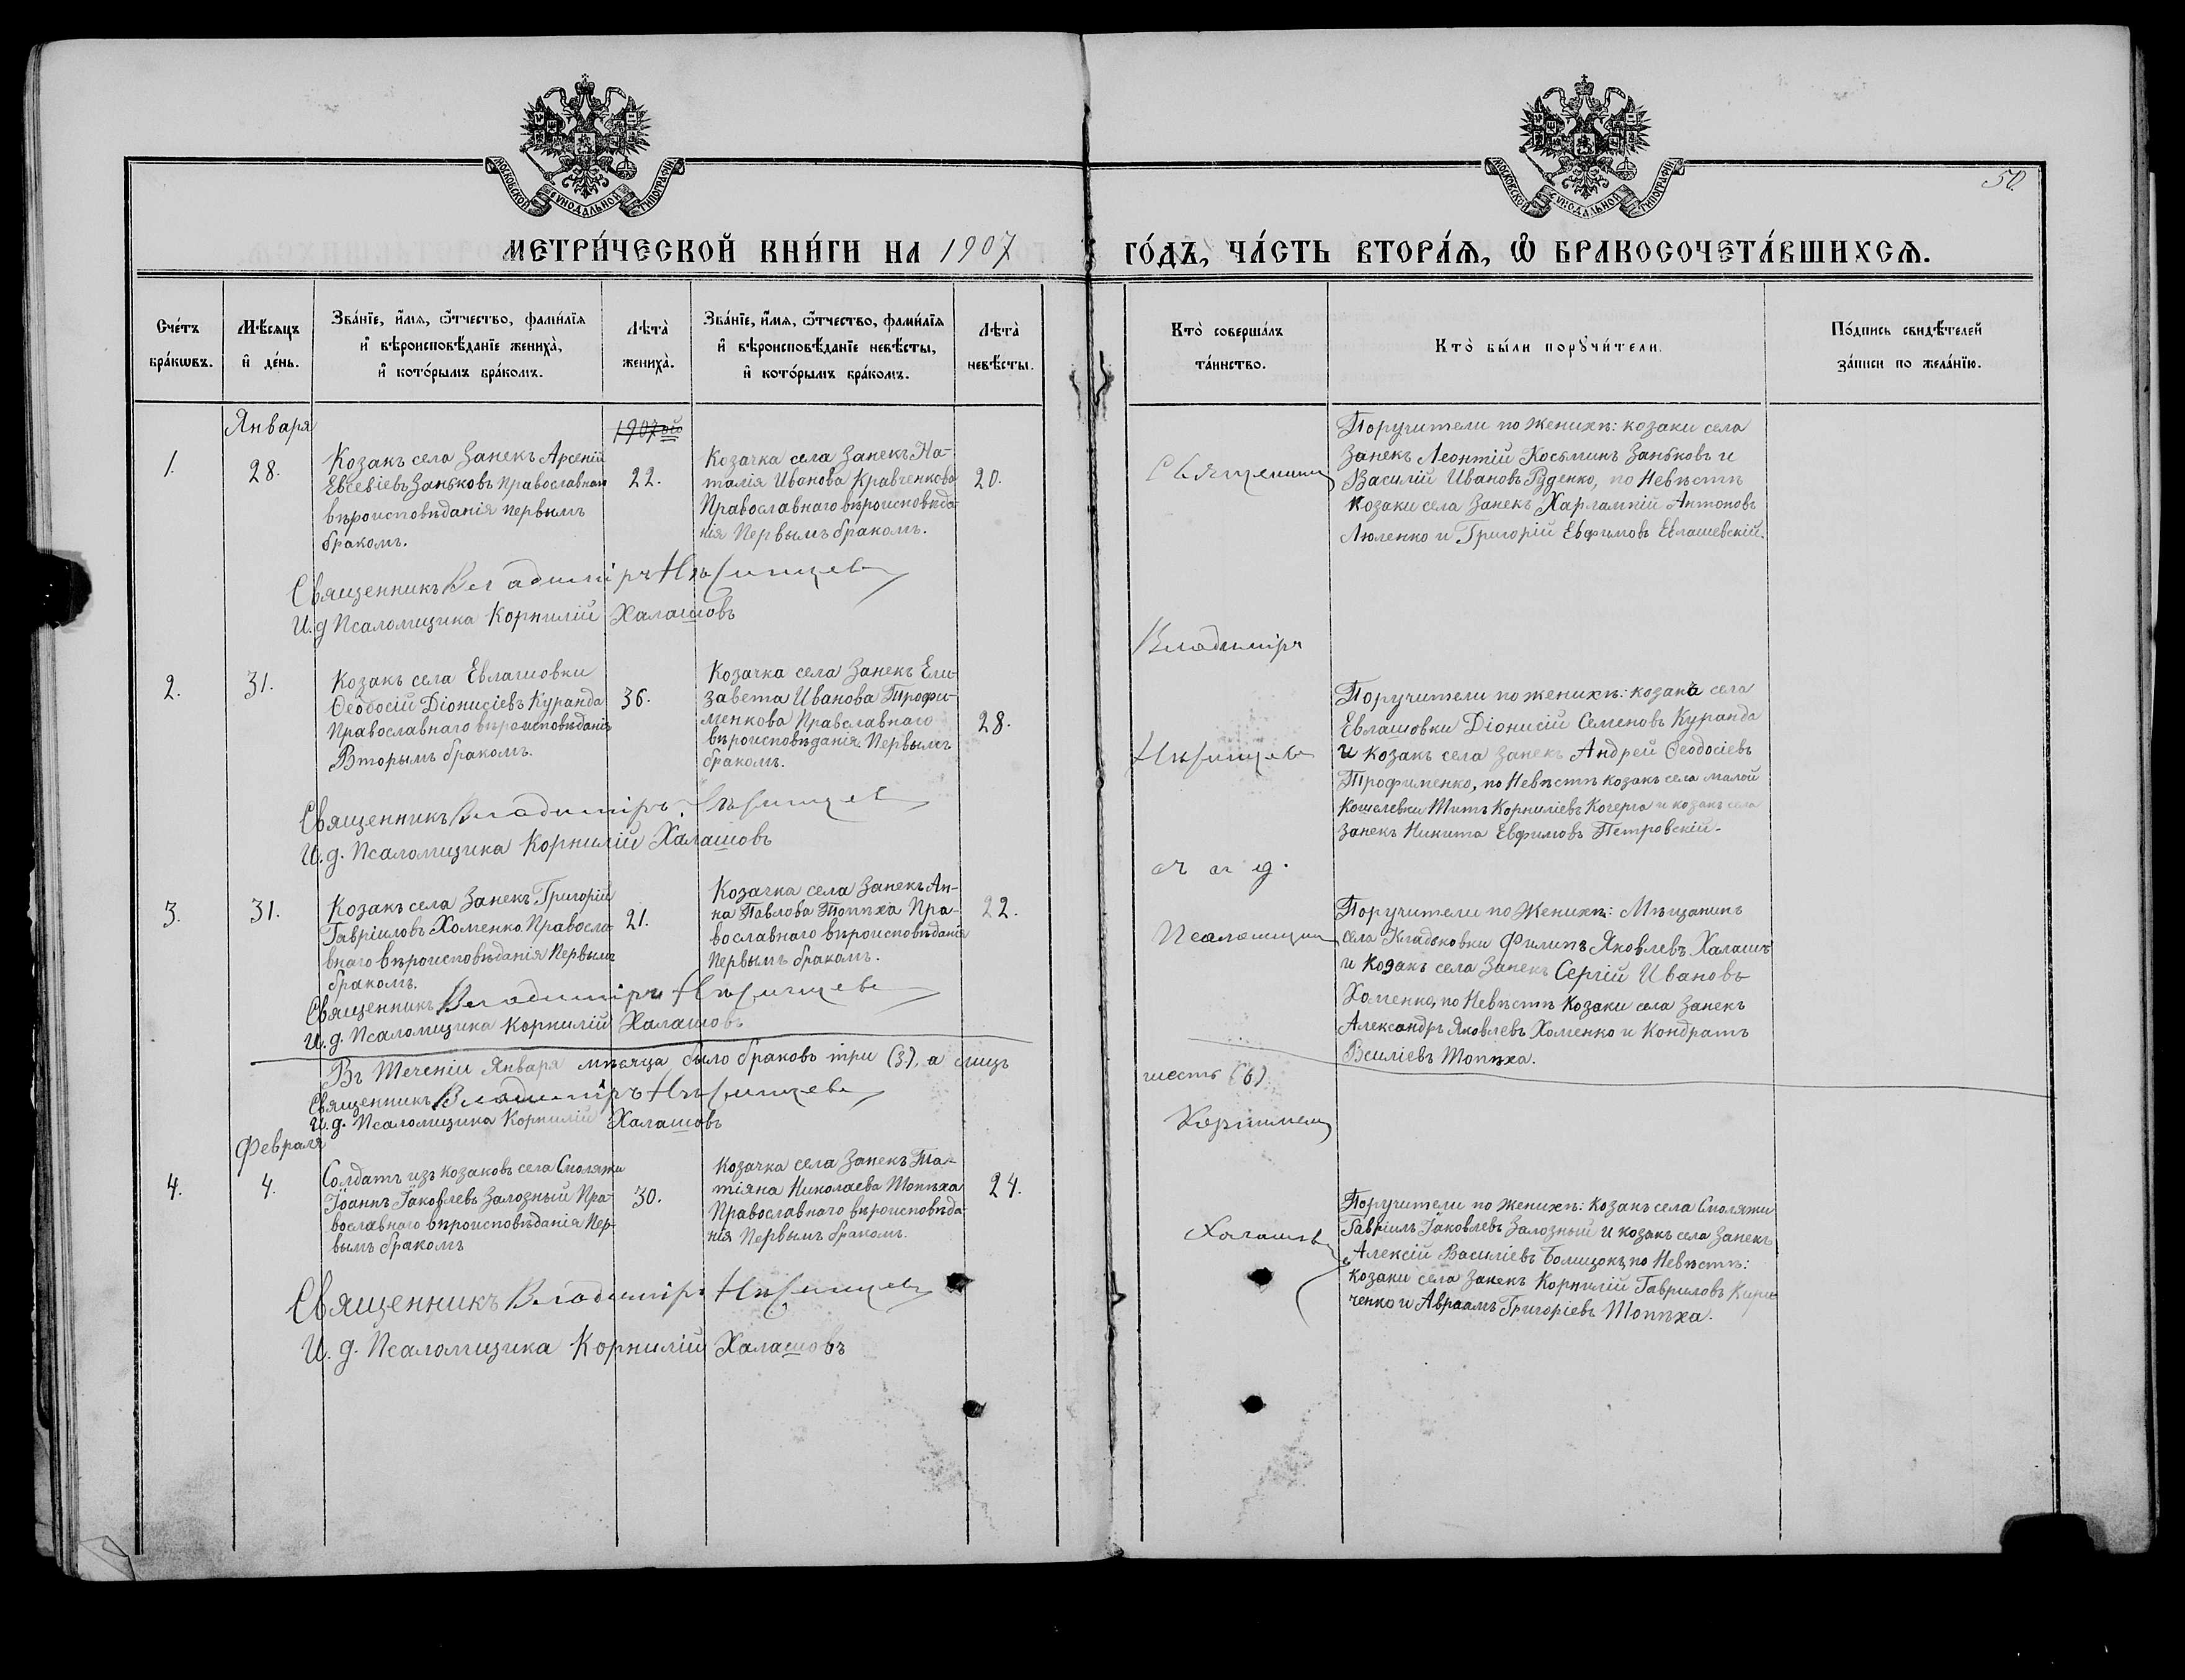 МОСКОВСКОЙ СѴНОДАЛЬНОЙ ТИПОГРАФІИ
МОСКОВСКОЙ СѴНОДАЛЬНОЙ ТИПОГРАФІИ
50
МЕТРИ́ЧЕСКОЙ КНИ́ГИ НА 1907
ГО́ДЪ, ЧА́СТЬ ВТОРА́Ѧ, Ѽ БРАКОСОЧЕТА́ВШИХСѦ.
Сче́тъ
бра́кѡвъ.
Мѣ́сяцъ
и҆ де́нь.
Зва́нїе, и҆́мѧ, ѻ҆́тчество, фами́лїѧ
и҆ вѣроисповѣ́данїе жениха̀,
и҆ кото́рымъ бра́комъ.
Лѣта̀
жениха̀.
Зва́нїе, и҆́мѧ, ѻ҆́тчество, фами́лїѧ
и҆ вѣроисповѣ́данїе невѣ́сты,
и҆ кото́рымъ бра́комъ.
Лѣта̀
невѣ́сты.
Кто̀ соверша́лъ
та́инство.
Кто̀ бы́ли порꙋчи́тели.
По́дпись свидѣ́телей
за́писи по жела́нїю.
Января
1.
28.
Козакъ села Занекъ Арсеній
Евсевіевъ Заньковъ Православнаго
вѣроисповѣданія первымъ
бракомъ.
22.
Козачка села Занекъ На-
талія Иванова Кравченкова
Православнаго вѣроисповѣда-
нія Первымъ бракомъ.
20.
Священникъ
Поручители по женихѣ: козаки села
Занекъ Леонтій Косьминъ Заньковъ и
Василій Ивановъ Руденко, по Невѣстѣ
Козаки села Занекъ Харлампій Антоновъ
Люленко и Григорій Евфимовъ Евлашевскій.
Священникъ Владиміръ
И.д Псаломщика Корнилій Халашовъ
Владиміръ
2.
31.
Козакъ села Евлашовки
Ѳеодосій Діонисіевъ Куранда
Православнаго вѣроисповѣданія
Вторымъ бракомъ.
36.
Козачка села Занекъ Ели-
завета Иванова Трофи-
менкова Православнаго
вѣроисповѣданія Первымъ
бракомъ.
28.
Поручители по женихѣ: козакъ села
Евлашовки Діонисій Семеновъ Куранда
и козакъ села Занекъ Андрей Ѳеодосіевъ
Трофименко, по Невѣстѣ козакъ села Малой
Кошелевки Титъ Корниліевъ Кочерга и козакъ села
Занекъ Никита Евфимовъ Петровскій.
Священникъ Владиміръ
И.д. Псаломщика Корнилій Халашовъ
съ и д.
3.
31.
Козакъ села Занекъ Григорій
Гавріиловъ Хоменко Правосла-
внаго вѣроисповѣданія Первымъ
бракомъ.
21.
Козачка села Занекъ Ан-
на Павлова Топѣха Пра-
вославнаго вѣроисповѣданія
Первымъ бракомъ.
22.
Псаломщик
Поручители по Женихѣ: Мѣщанинъ
села Кладьковки Филипъ Яковлевъ Халашъ
и Козакъ села Занекъ Сергій Ивановъ
Хоменко, по Невѣстѣ Козаки села Занекъ
Александръ Яковлевъ Хоменко и Кондратъ
Всиліевъ Топѣха.
Священникъ Владиміръ
И.д. Псаломщика Корнилій Халашовъ
Въ Теченіи Января мѣсяца было браковъ три (3.), а лицъ
шесть (6)
Священникъ Владиміръ
И.д. Псаломщика Корнилій Халашовъ
Корниліемъ
Февраля
4.
4.
Солдатъ изъ козаковъ села Смоляжи
Іоаннъ Іаковлевъ Залозный Пра-
вославнаго вѣроисповѣданія Пер-
вымъ бракомъ
30.
Козачка села Занекъ Та-
тіяна Николаева Топѣха
Православнаго вѣроисповѣда-
нія Первымъ бракомъ.
24.
Халашовъ
Поручители по женихѣ: Козакъ села Смоляжи
Гавріилъ Іаковлевъ Залозный и козакъ села Занекъ
Алексій Василіевъ по Невѣстѣ:
Козаки села Занекъ Корнилій Гавриловъ Кири-
ченко и Авраамъ Григоріевъ Топѣха.
Священникъ Владиміръ
И. д. Псаломщика Корнилій Халашовъ